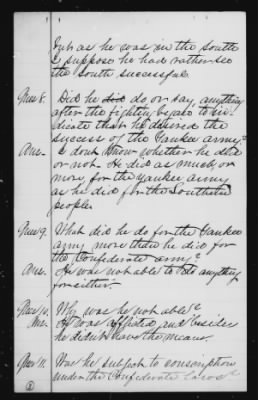 But as he was in the south
I suppose he had rather see
the south successful.
Ques 8. Did he did do or say, anything
after the fighting began to in-
dicate that he desired the
success of the Yankee army?
Ans. I dont know whether he did
or not. He did as much or
more, for the Yankee army
as he did for the Southern
people.
Ques 9. What did he do for the Yankee
army more than he did for
the Confederate army?
Ans. He was not able to do anything
for either.
Ques 10. Why was he not able?
Ans. He was afflicted and besides
he didn't have the means.
Ques 11. Was he subject to conscription
under the Confederate Laws?